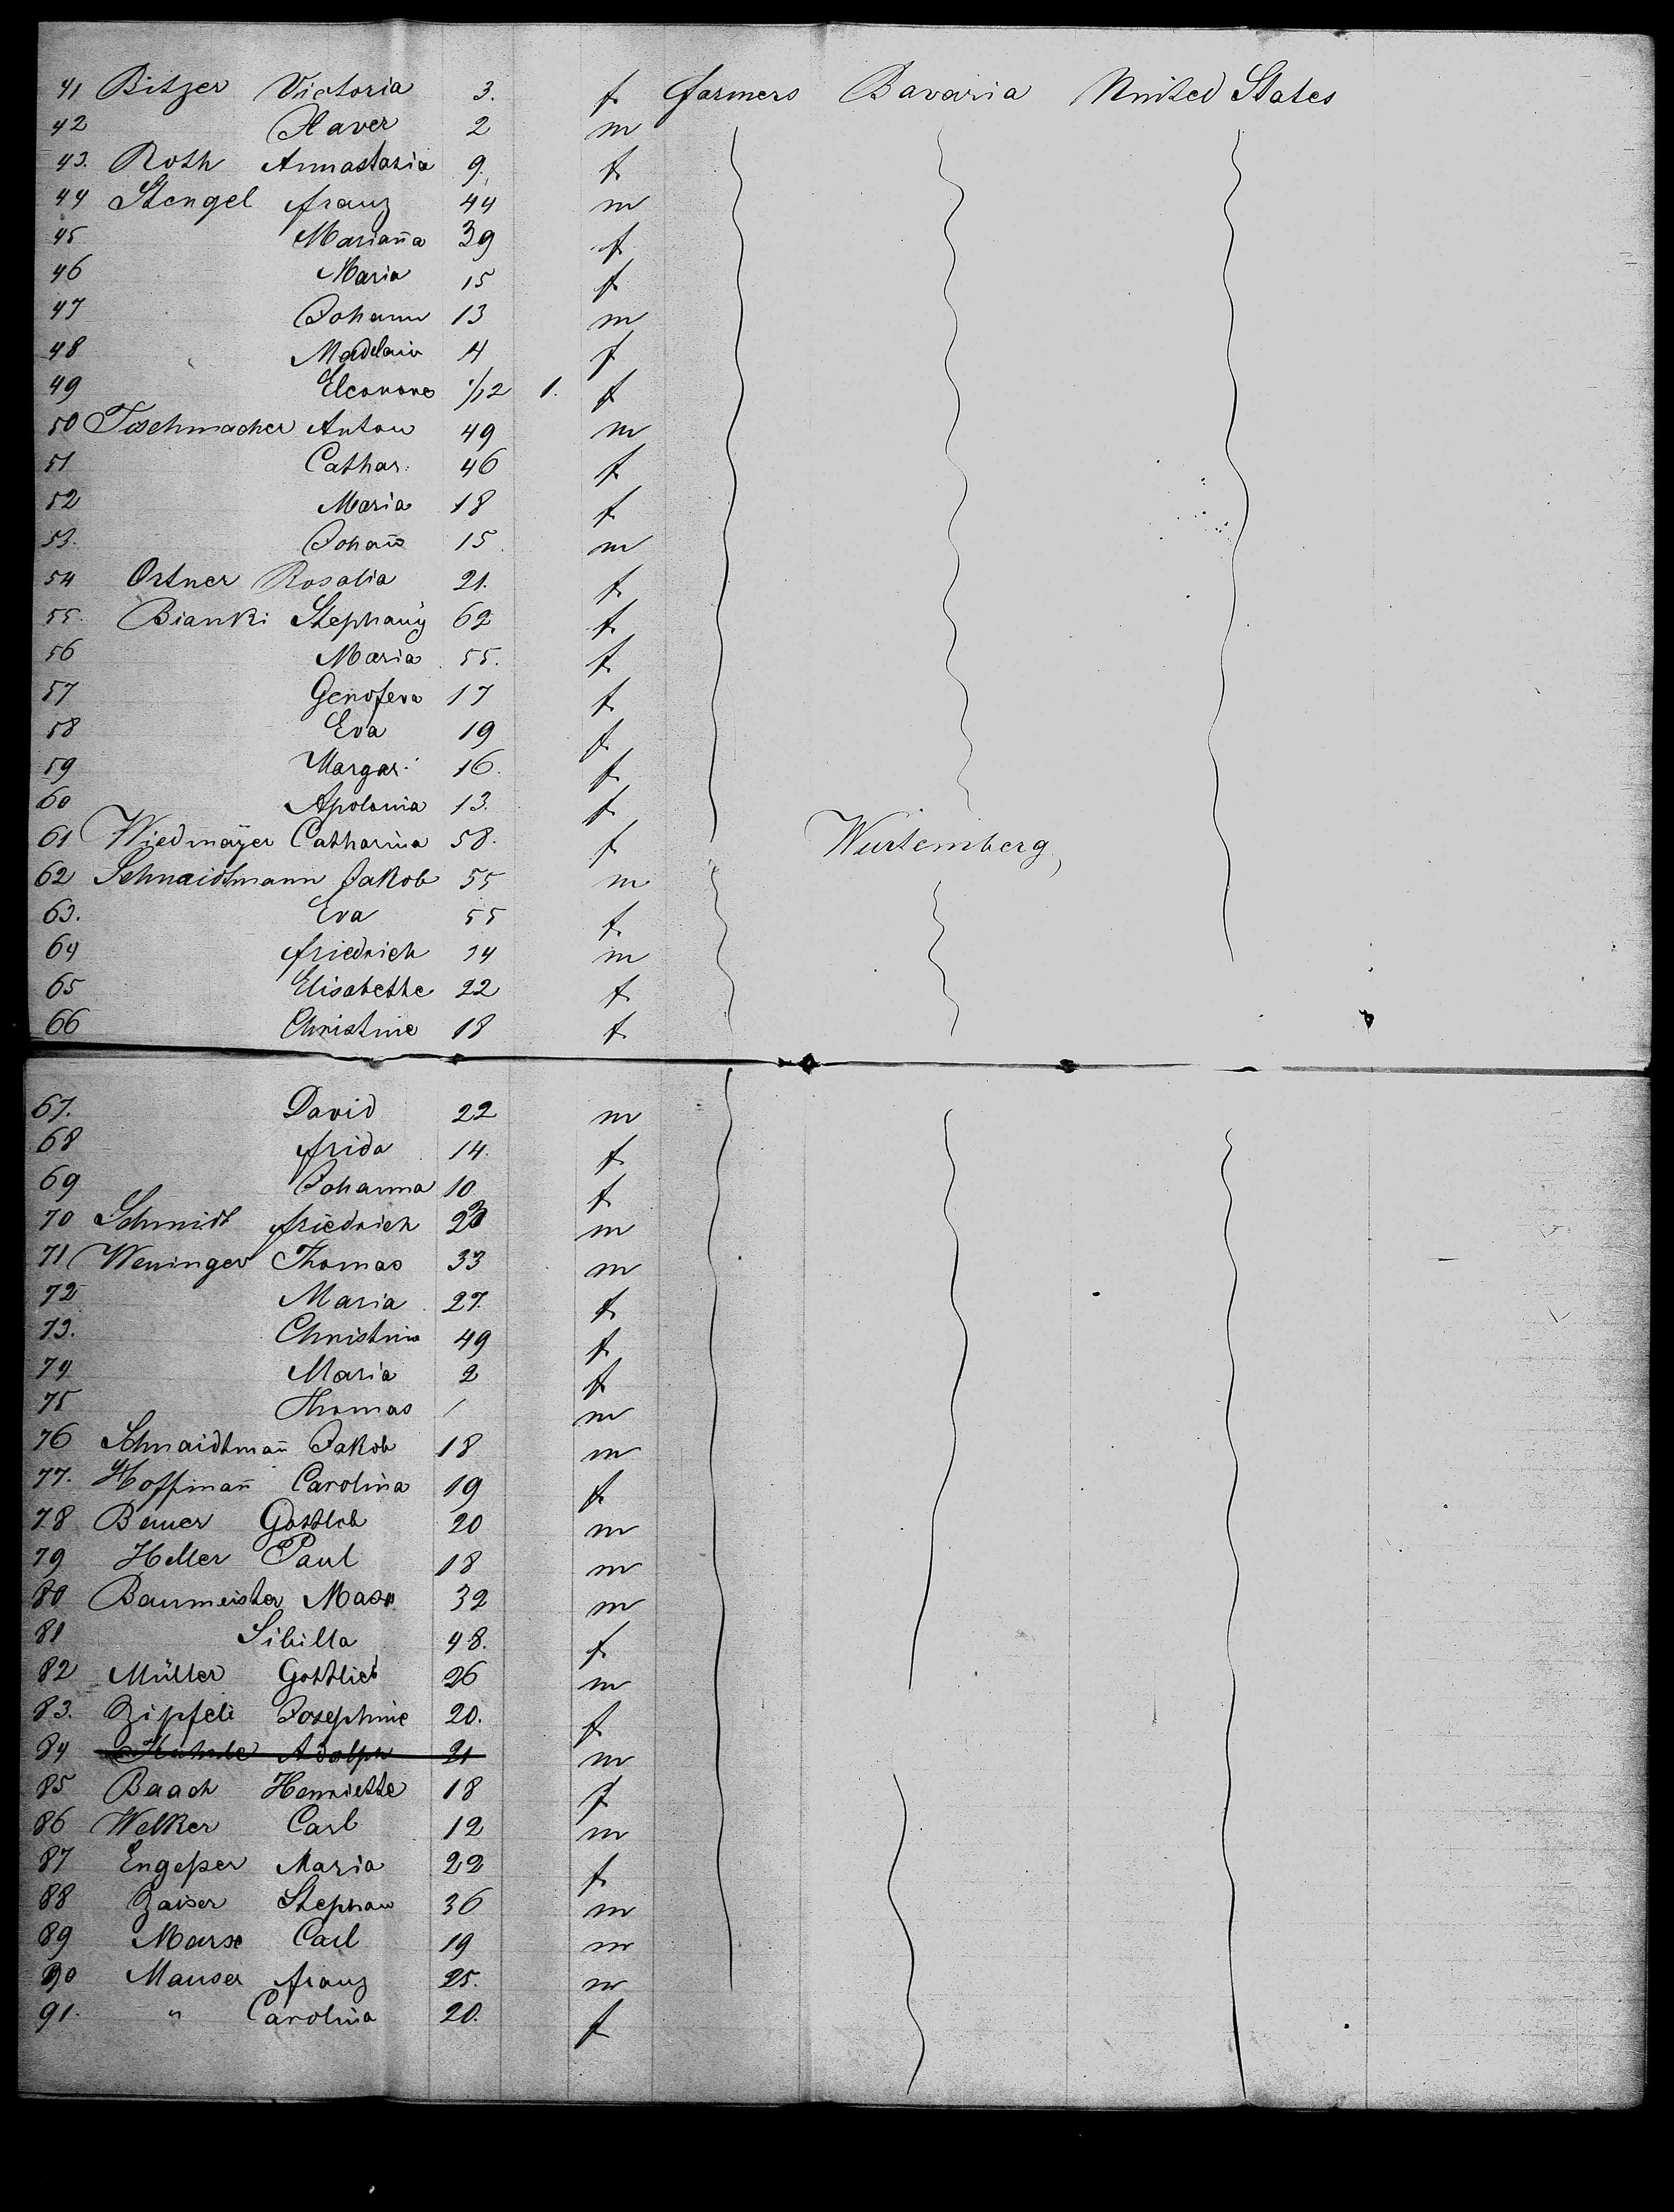 41 Bitzer Victoria 3. f farmers Bavaria United States
42 Xaver 2 m
43. Roth Annastasia 9. f
44 Stengel franz 44 m
45 Mariana̅ 39 f
46 Maria 15 f
47 Johann 13 m
48 Madelain 4 f
49 Eleonore 1/12 1. f
50 Tischmacher Anton 49 m
51 Cathar: 46 f
52 Maria 18 f
53. Johan̅ 15. m
54 Ortner Rosalia 21. f
55. Bianki Stephany 62 f
56 Maria 55. f
57 Genofeva 17 f
58 Eva 19 f
59 Margar: 16. f
60 Apolonia 13. f
61 Wiedmayer Catharina 58. f Wurtemberg,
62 Schnaidtmann Jakob 55 m
63. Eva 55 f
64 friedrich 14 m
65 Elisabethe 22 f
66 Christine 18 f
67. David 22 m
68 frida 14. f
69 Johanna 10 f
70 Schmidt friedrich m
71 Weninger Thomas 33 m
72 Maria 27. f
73. Christina 49 f
74 Maria 2 f
75 Thomas 1 m
76 Schnaidtman̅ Jakob 18 m
77. Hoffman̅ Carolina 19 f
78 Gottlob 20 m
79 Heller Paul 18 m
80 Baumeister Max 32 m
81 Sibilla 48. f
82 Müller Gottlieb 26 m
83. Zipfeli Josephine 20. f
84 Adolph 21 m
85 Baach Henriette 18 f
86 Welker Carl 12 m
87 Engeßer Maria 22 f
88 Zaiser Stephan 36 m
89 Carl 19 m
90 Mauser franz 25. m
91. " Carolina 20. f